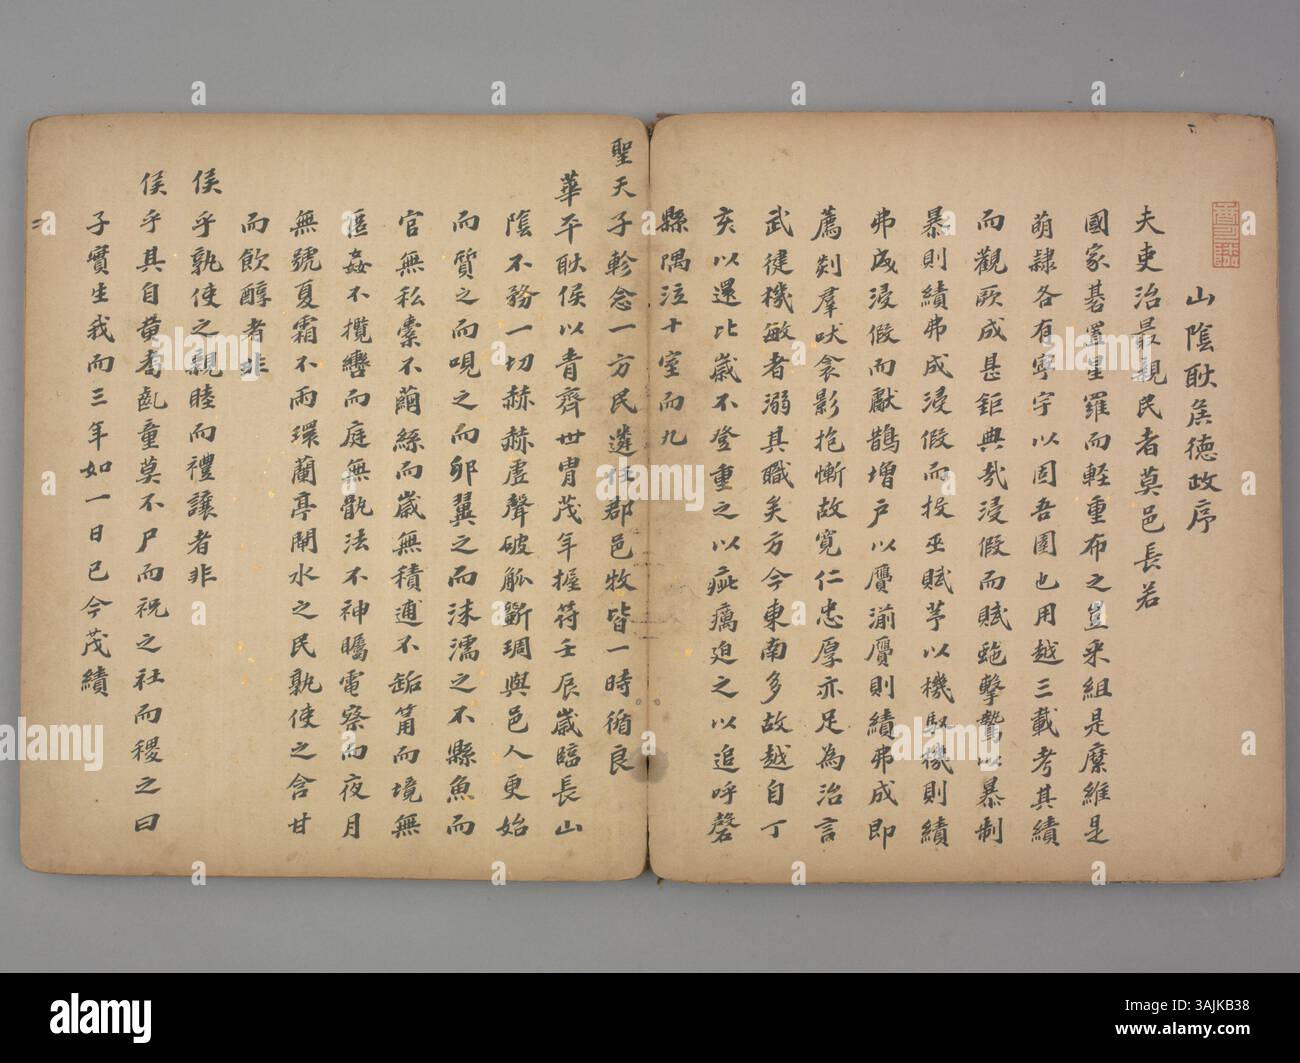 山陰耿侯德政序
夫吏治最親民者莫邑長若
國家碁置星羅而輕重布之豈采組是縻維是
萌隸各有寧宇以固吾圉也用越三載考其績
而觀厥成甚鉅典哉浸假而賦鮑擊鷙以暴制
暴則績弗成浸假而投巫賦芧以機馭機則績
弗成浸假而獻鵲增戶以贋湔贋則績弗成即
薦剡羣吠衾影抱慚故寬仁忠厚亦足為治言
武健機敏者溺其職矣方今東南多故越自丁
亥以還比歲不登重之以疵癘廹之以追呼磬
縣隅泣十室而九
聖天子軫念一方民遴任郡邑牧皆一時循良
華平耿侯以青齊世胄茂年握符壬辰歲臨長山
陰不務一切赫赫虛聲破觚斵琱與邑人更始
而質之而呪之而卵翼之而沫濡之不縣魚而
官無私橐不繭絲而歲無積逋不缿筩而境無
區姦不攬轡而庭無骫法不神矚電察而夜月
無號夏霜不雨環蘭亭聞水之民孰使之含甘
而飲醇者非
侯乎孰使之親睦而禮讓者非
侯乎其自黃耇齔童莫不尸而祝之社而稷之曰
子實生我而三年如一日已今茂績
a alamy
Image ID: 3AJKB38
www.alamy.com